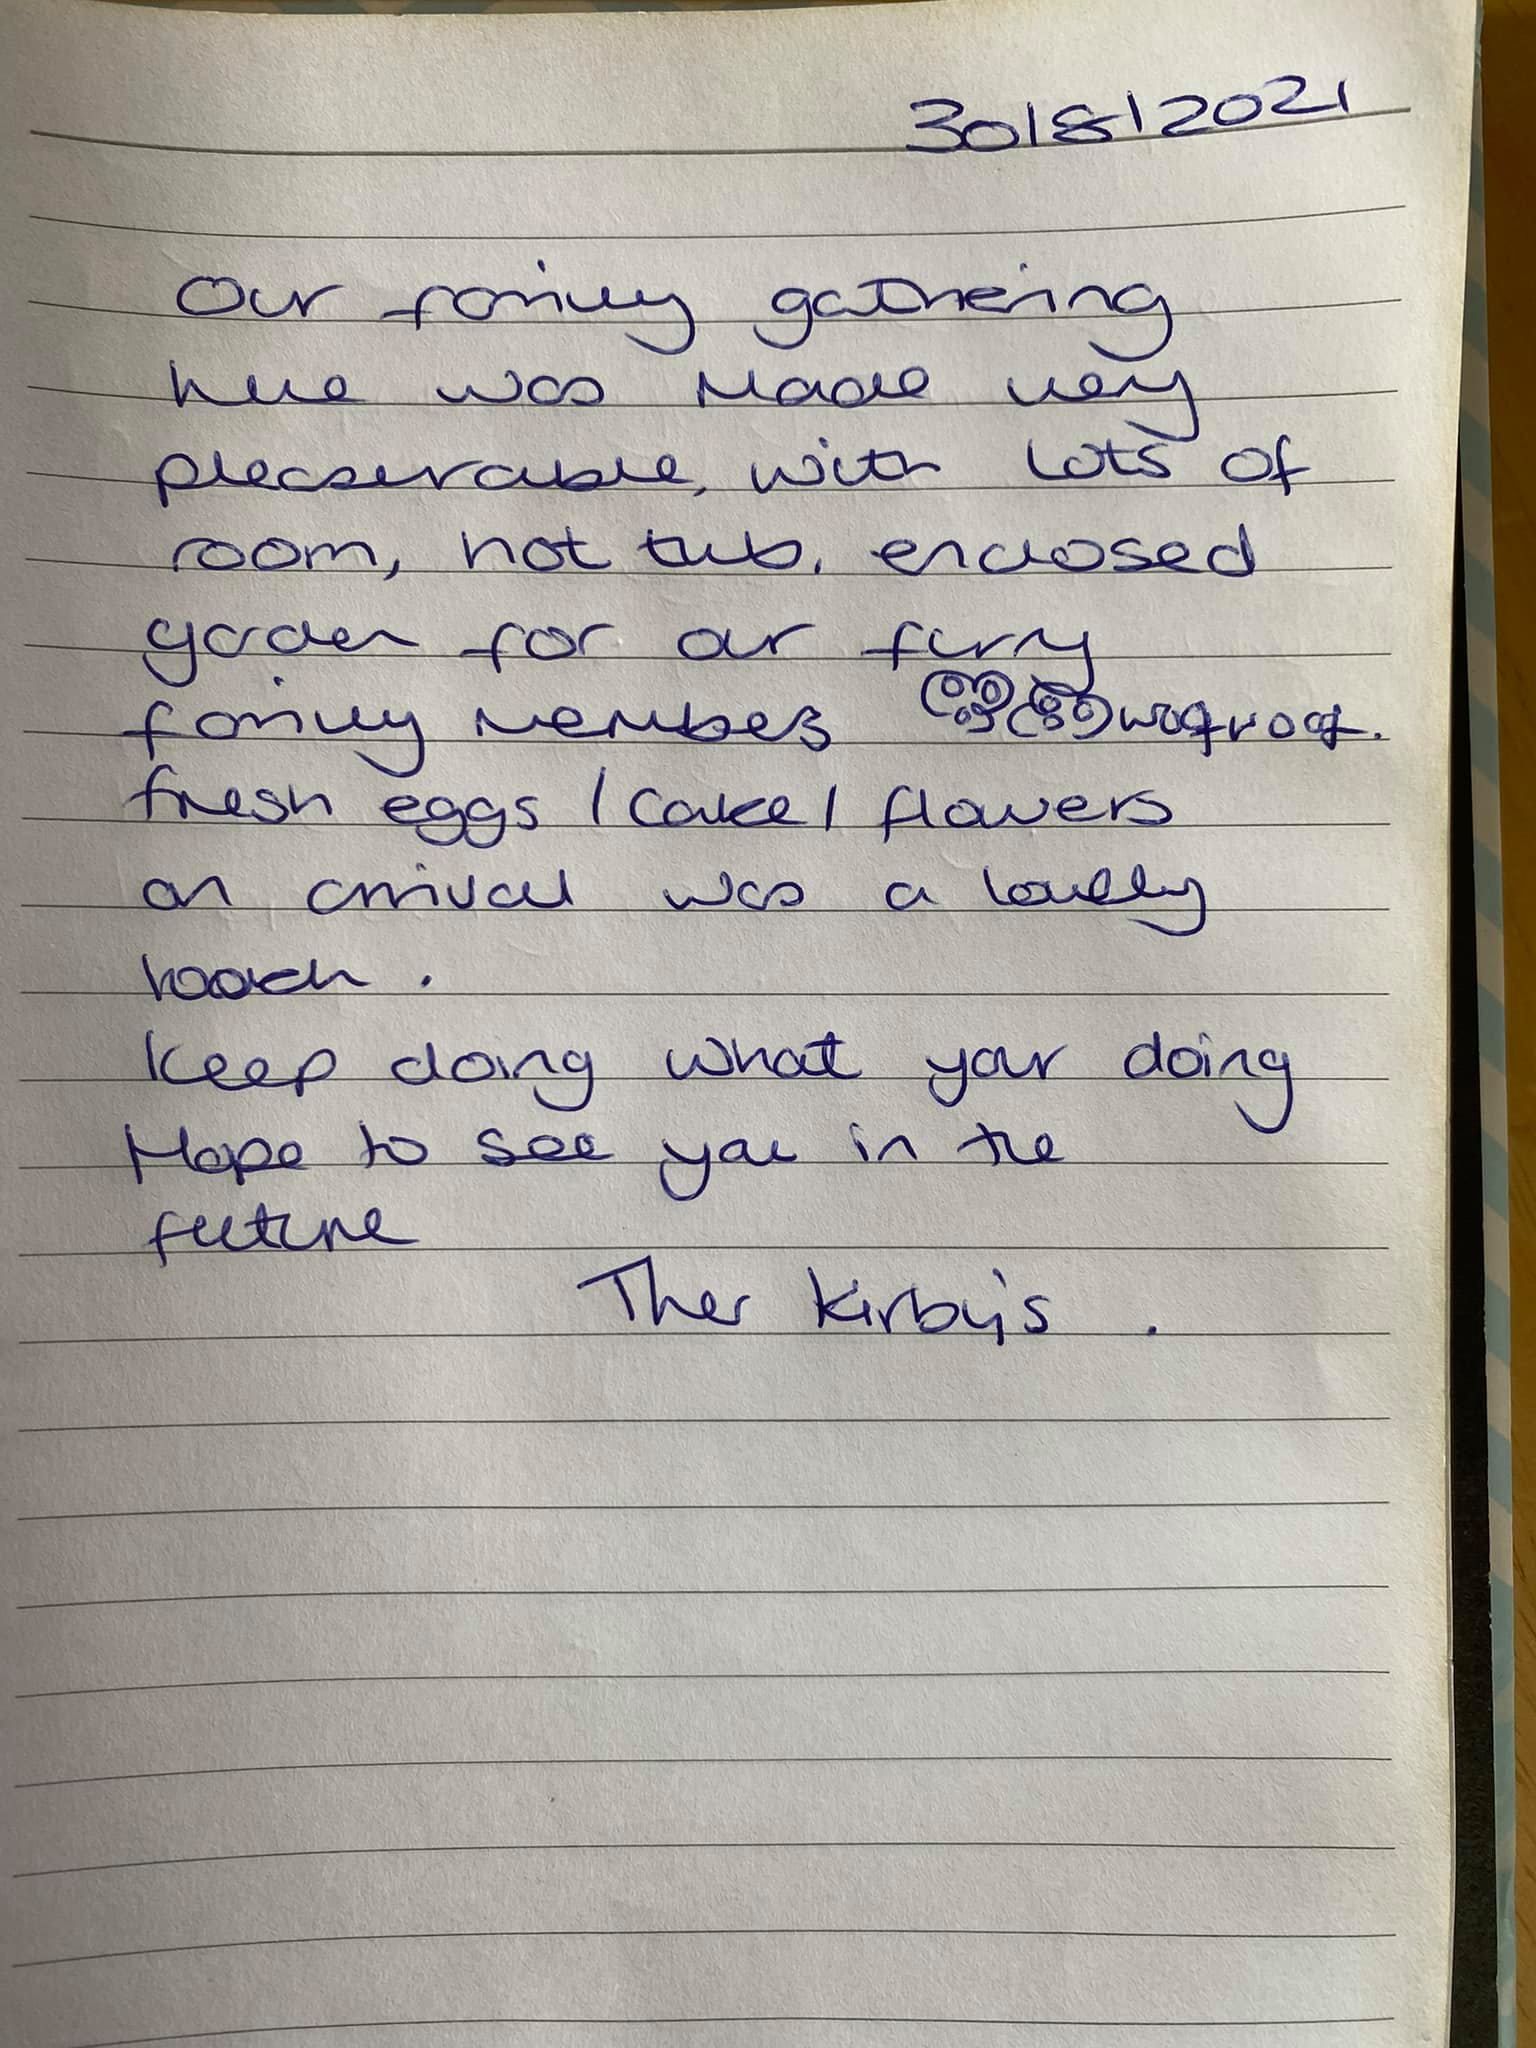 30/8/2021
Our family gathering
here was made very
pleaserable, with lots of
room, hot tub, enclosed
garden for our furry
family members woof woof.
fresh eggs / cake / flowers
on arrival was a lovely
toach.
Keep doing what your doing
Hope to see you in the
future
Ther Kirby's.